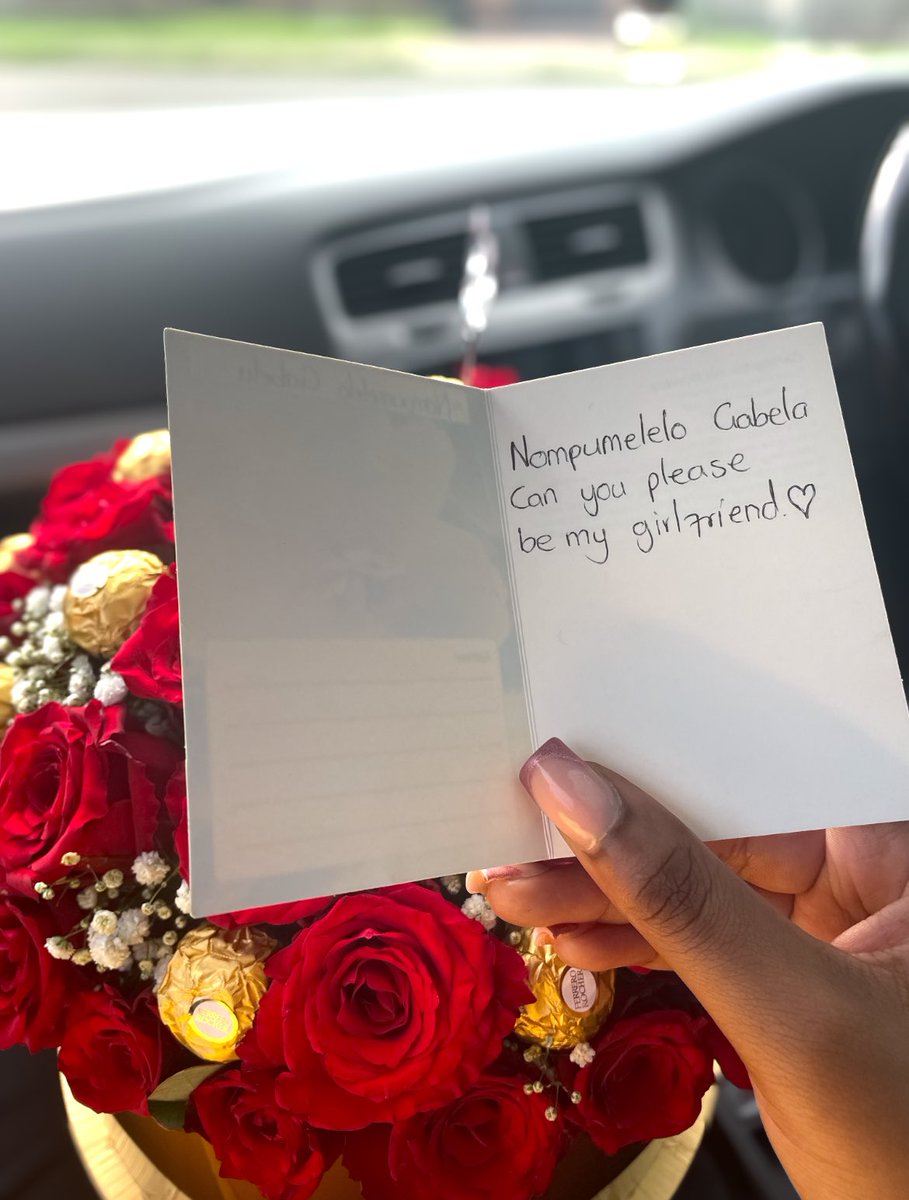 Nompumelelo Gabela
Can you please
be my girlfriend.♡
FERRERO
ROCHER